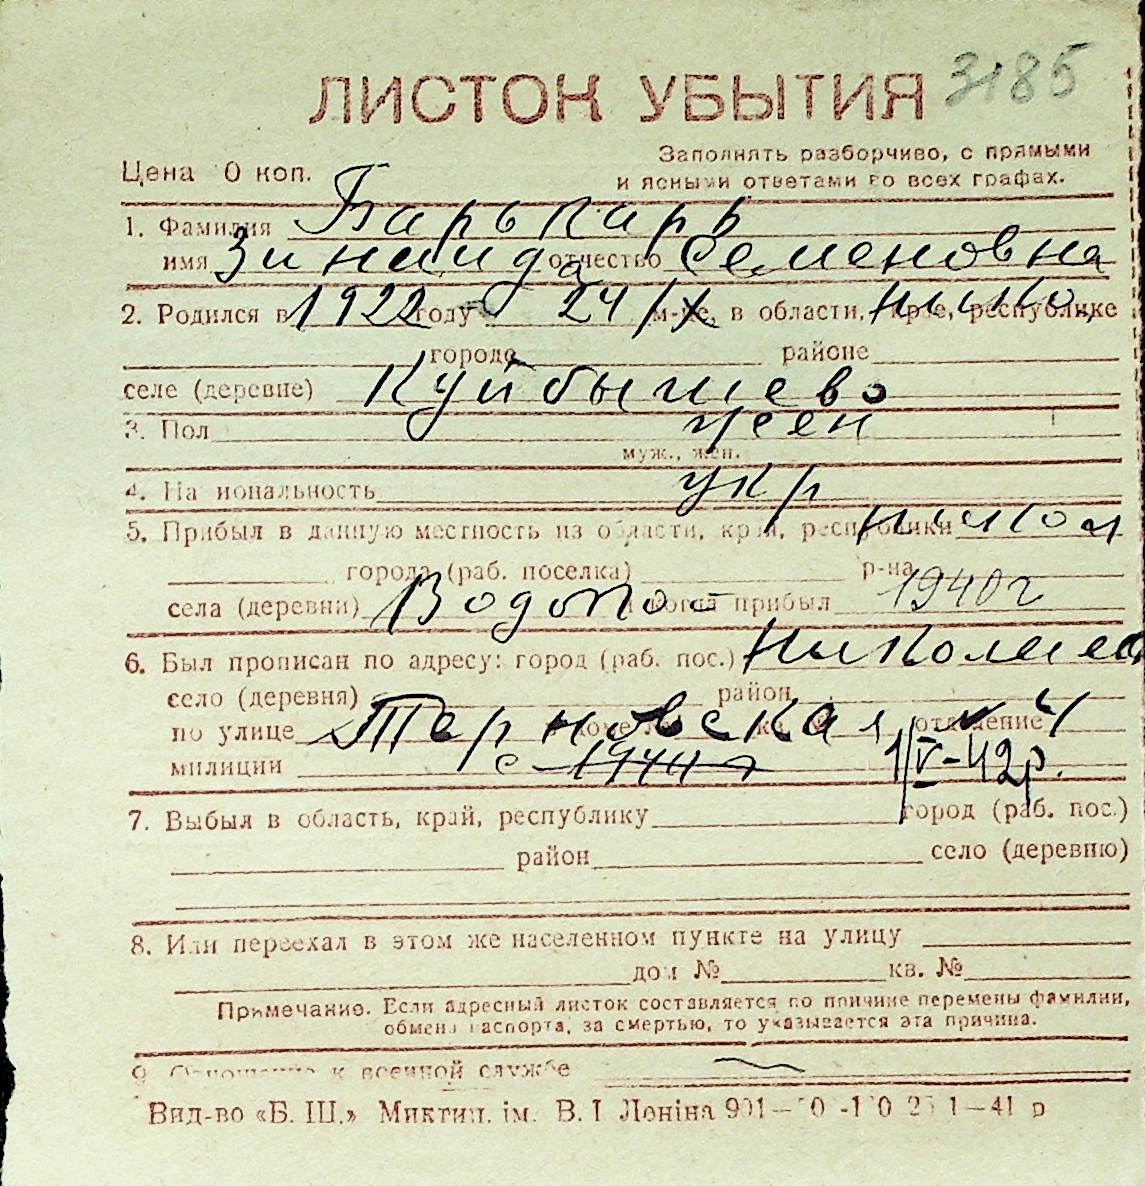 ЛИСТОК УБЫТИЯ 3185
Заполнять разборчиво, с прямыми
Цена 0 коп. и ясными ответами во всех графах.
1. Фамилия Барькарь
имя Зинаида отчество Семеновна
2. Родился в 1922 году 24/X м-це, в области, крае, республике
городе районе
селе (деревне) Куйбышево
3. Пол жен
муж., жен.
4. Национальность укр
5. Прибыл в данную местность из области, края, республики Никол
города (раб. поселка) р-на
села (деревни) Водопой и когда прибыл 1940 г
6. Был прописан по адресу: город (раб. пос.) Николаев
село (деревня) район
по улице Терновская отделение
милиции с 1944 г 1/V-42р.
7. Выбыл в область, край, республику город (раб. пос.)
район село (деревню)
8. Или переехал в этом же населенном пункте на улицу
дом № кв. №
Примечание. Если адресный листок составляется по причине перемены фамилии,
обмена паспорта, за смертью, то указывается эта причина.
9. Отношение к военной службе
Вид-во «Б. Ш.» Миктип. ім. В. І Леніна